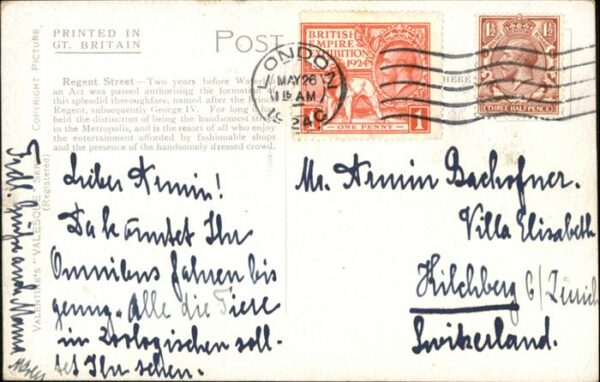 PRINTED IN
GT. BRITAIN
POST
Regent Street — Two years before
an Act was passed authorising the
this splendid thoroughfare, named after the
Regent, subsequently George IV. For long
held the distinction of being the handsomest
in the Metropolis, and is the resort of all who enjoy
the entertainment afforded by fashionable shops
and the presence of the handsomely dressed crowd.
COPYRIGHT PICTURE.
VALENTINE'S "VALESQUE" SERIES
(Registered)
BRITISH
EMPIRE
EXHIBITION
1924
ONE PENNY
1
LONDON
MAY 26
AM
24
HERE
1½ 1½
THREE HALFPENCE
Lieber Armin!
Da könntet Ihr
Omnibus fahren bis
genug. Alle die Tiere
im Zoologischen soll-
tet Ihr sehen.
Mama
Mr. Armin Bachofner.
Villa Elizabeth
Kilchberg b/Zürich
Switzerland.